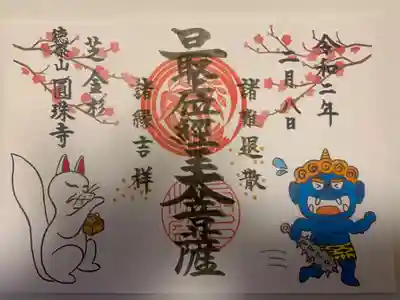 令和二年
二月八日
諸難退散
最位經王大菩薩
諸縁吉祥
芝金杉
圓珠寺